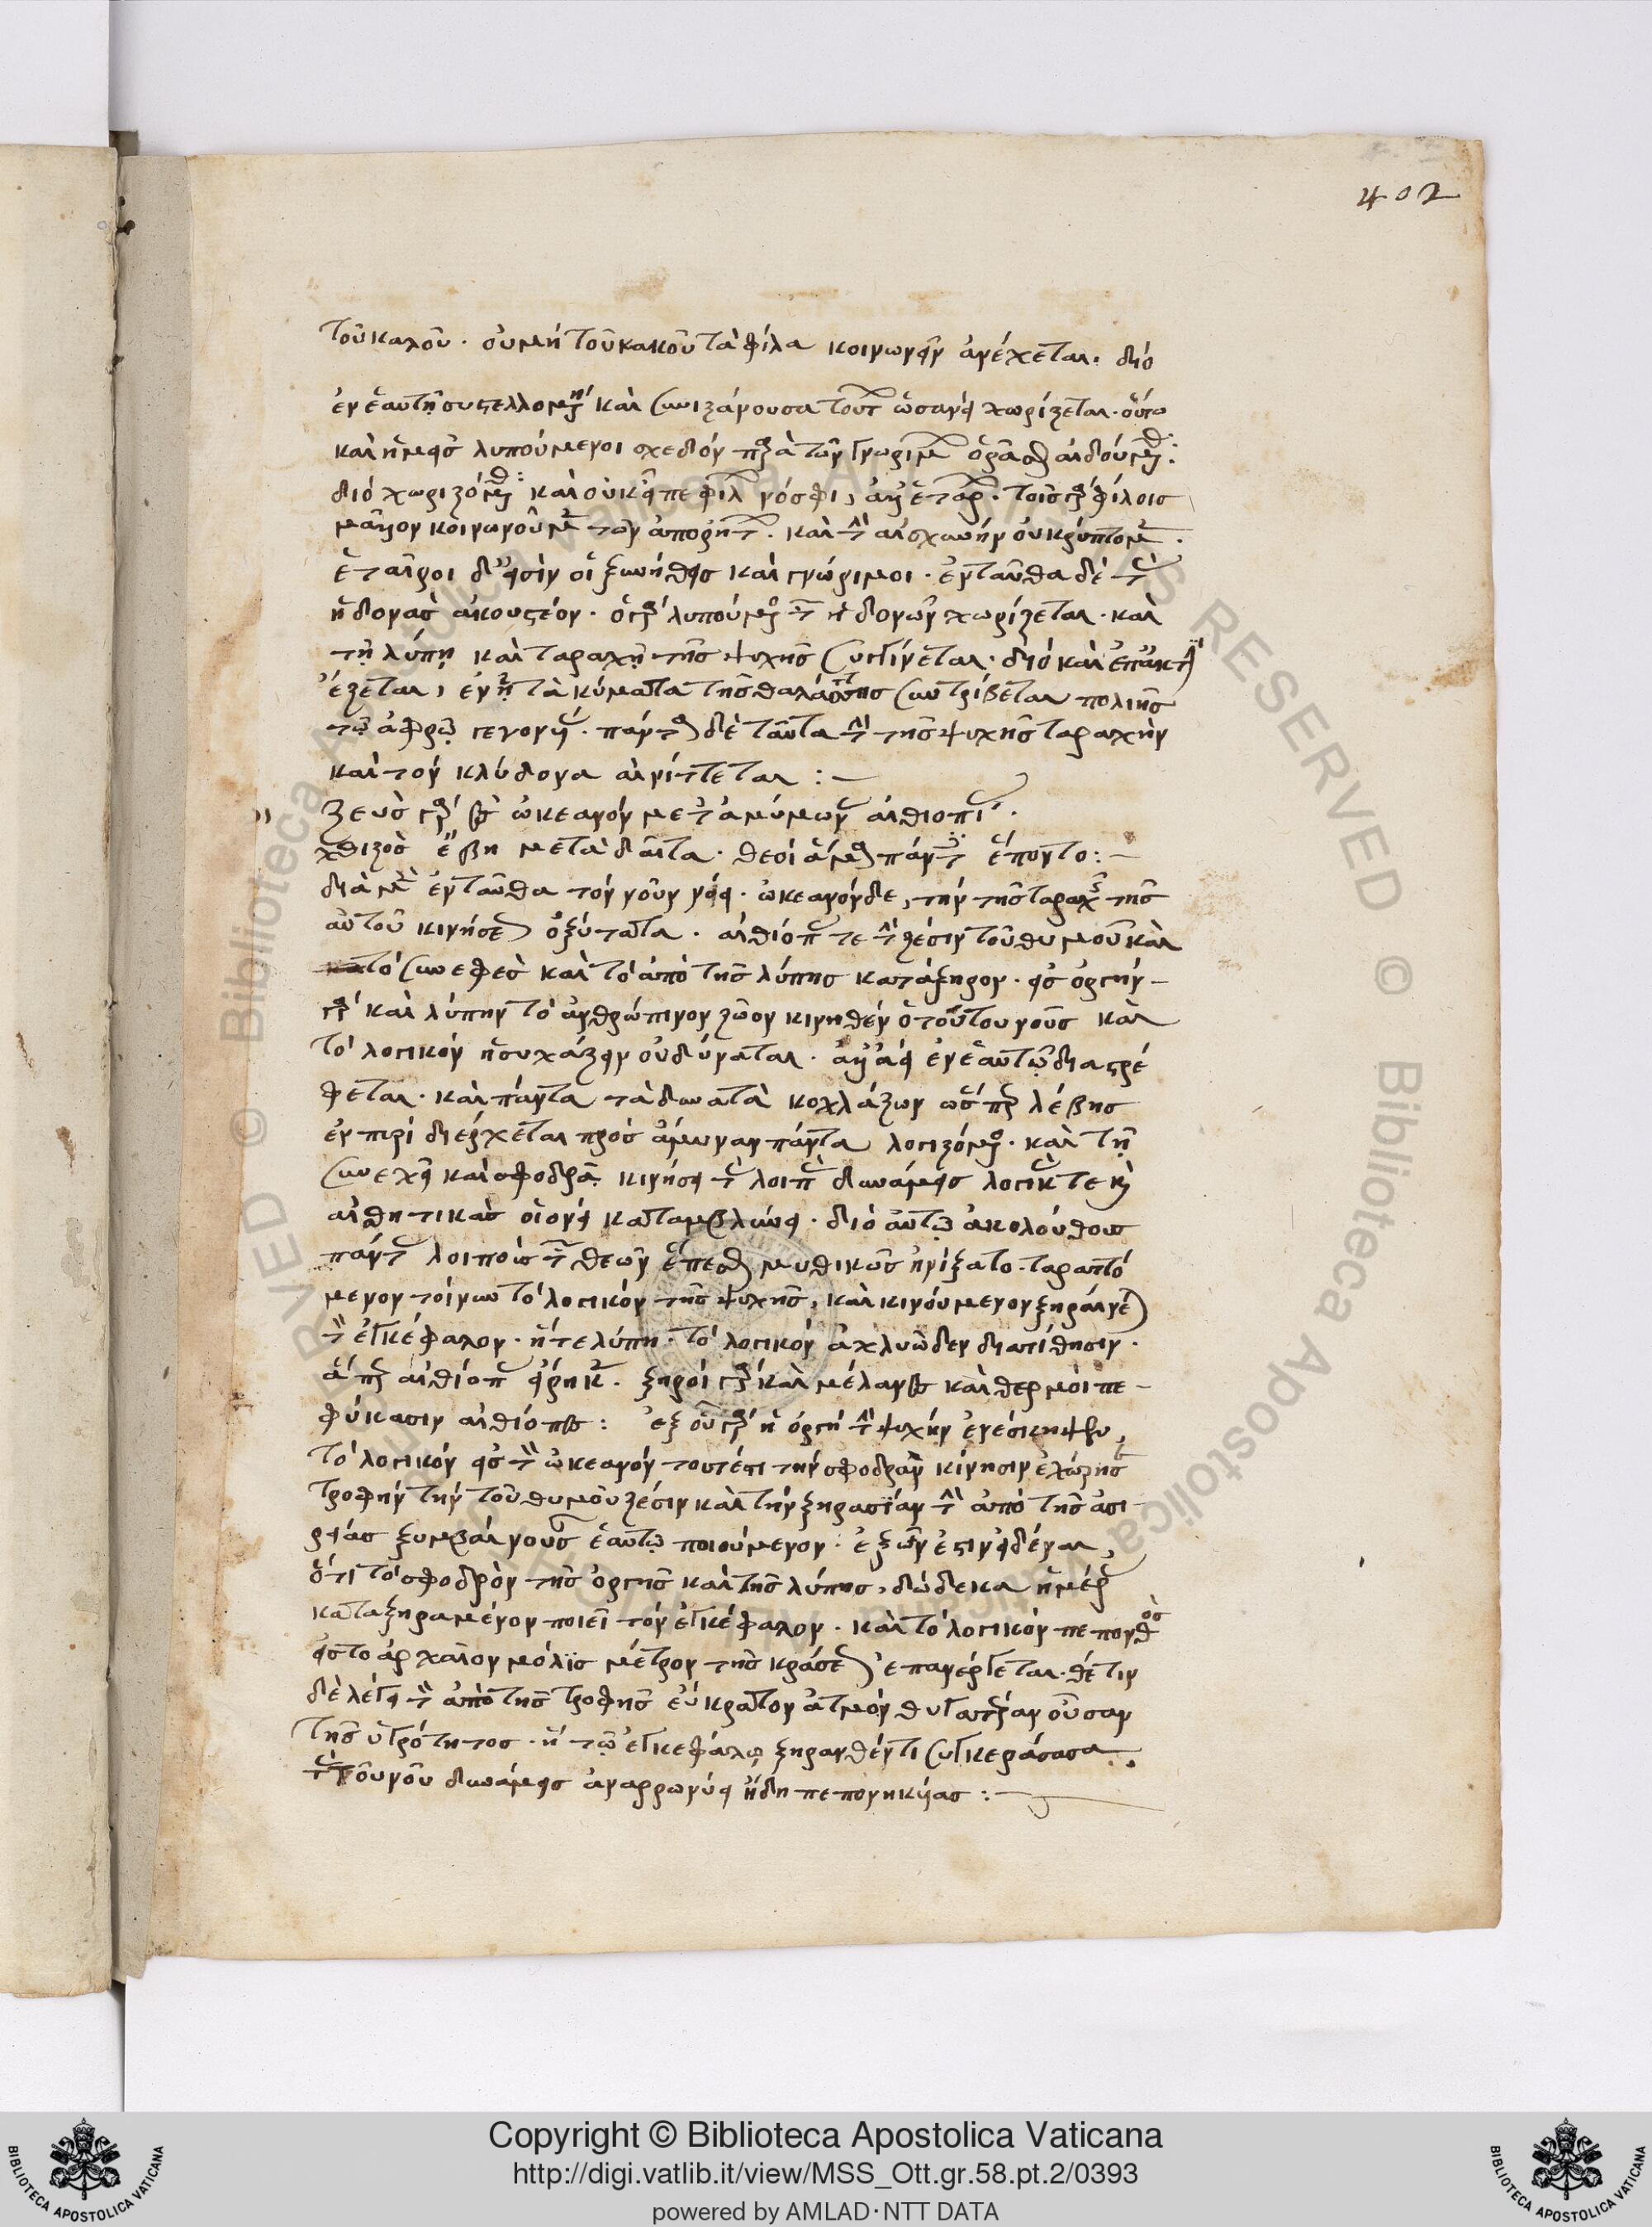 402
τοῦ καλοῦ. οὐ μὴ τοῦ κακοῦ τὰ φίλα κοινωνεῖν ἀνέχεται. διὸ
ἐν ἑαυτῇ συστελλομένη καὶ συνιζάνουσα τούτου ὡσανεὶ χωρίζεται. οὕτω
καὶ ἡμεῖς λυπούμενοι σχεδὸν παρὰ τῶν γνωρίμων ὁρᾶσθαι αἰδούμεθα.
διὸ χωριζόμεθα. καὶ οὐκ εἶπε φίλων νόσφι, ἀλλ' ἑτάρων. τοῖς γὰρ φίλοις
μᾶλλον κοινωνοῦμεν τῶν ἀπορρήτων. καὶ τὴν αἰσχύνην οὐ κρύπτομεν.
ἑταῖροι δ' εἰσὶν οἱ ξυνήθεις καὶ γνώριμοι. ἐνταῦθα δὲ τὰς
ἡδονὰς ἀκουστέον. ὁ γὰρ λυπούμενος τῶν ἡδονῶν χωρίζεται. καὶ
τῇ λύπῃ καὶ ταραχῇ τῆς ψυχῆς συγγίνεται. διὸ καὶ ἐπ' ἀκτὴν
ἕζεται, ἐν ᾗ τὰ κύματα τῆς θαλάσσης συντρίβεται πολιῆς
τῷ ἀφρῷ γεγονυίας. πάντα δὲ ταῦτα τὴν τῆς ψυχῆς ταραχὴν
καὶ τὸν κλύδονα αἰνίττεται :—
Ζεὺς γὰρ ἐς ὠκεανὸν μετ' ἀμύμονας αἰθιοπῆας.
χθιζὸς ἔβη μετὰ δαῖτα. θεοὶ ἅμα πάντες ἕποντο :—
δία μὲν ἐνταῦθα τὸν νοῦν νόει. ὠκεανὸν δὲ, τὴν τῆς ταραχῆς τῆς
αὐτοῦ κινήσεως ὀξύτατα. αἰθίοπας τε τὴν ζέσιν τοῦ θυμοῦ καὶ
τὸ συνεφὲς καὶ τὸ ἀπὸ τῆς λύπης κατάξηρον. εἰς ὀργὴν
γὰρ καὶ λύπην τὸ ἀνθρώπινον ζῶον κινηθὲν ὁ τούτου νοῦς καὶ
τὸ λογικὸν ἡσυχάζειν οὐ δύναται. ἀλλ' ἀεὶ ἐν ἑαυτῷ διαστρέ
φεται. καὶ πάντα τὰ δυνατὰ κοχλάζων ὥσπερ λέβης
ἐν πυρὶ διέρχεται πρὸς ἄμυναν πάντα λογιζόμενος. καὶ τῇ
συνεχεῖ καὶ σφοδρᾷ κινήσει τὰς λοιπὰς δυνάμεις λογικάς τε καὶ
αἰσθητικὰς οἱονεὶ καταμβλύνει. διὸ αὐτῷ ἀκολούθως
πάντας λοιποὺς τῶν θεῶν ἕπεσθαι μυθικῶς ᾐνίξατο. ταραττό
μενον τοίνυν τὸ λογικὸν τῆς ψυχῆς, καὶ κινούμενον ξηραίνει
τὸν ἐγκέφαλον. ἥ τε λύπη. τὸ λογικὸν ἀχλυῶδεν διατίθησιν.
ἅπερ αἰθίοπας εἴρηκεν. ξηροὶ γὰρ καὶ μέλανες καὶ θερμοὶ πε-
φύκασιν αἰθίοπες : ἐξ οὗ γὰρ ἡ ὀργὴ τὴν ψυχὴν ἐνέσκηψεν,
τὸ λογικὸν εἰς τὸν ὠκεανὸν τουτέστι τὴν σφοδρὰν κίνησιν ἐχώρησε
τροφὴν τὴν τοῦ θυμοῦ ζέσιν καὶ τὴν ξηρασίαν τὴν ἀπὸ τῆς ἀσι-
τίας ξυμβαίνουσαν ἑαυτῷ ποιούμενον. ἐξ ὧν ἐστὶν εἰδέναι,
ὅτι τὸ σφοδρὸν τῆς ὀργῆς καὶ τῆς λύπης, δώδεκα ἡμέρας
καταξηραμένον ποιεῖ τὸν ἐγκέφαλον. καὶ τὸ λογικὸν πεπονθὸς
εἰς τὸ ἀρχαῖον μόλις μέτρον τῆς κράσεως ἐπανέρχεται. θέτιν
δὲ λέγει τὸν ἀπὸ τῆς τροφῆς εὔκρατον ἀτμὸν θυγατέραν οὖσαν
τῆς ὑγρότητος. ἣ τῷ ἐγκεφάλῳ ξηρανθέντι συγκεράσασα
τὰς τοῦ νοῦ δυνάμεις ἀναρρωνύει ἤδη πεπονηκυίας :—
Copyright © Biblioteca Apostolica Vaticana
http://digi.vatlib.it/view/MSS_Ott.gr.58.pt.2/0393
powered by AMLAD·NTT DATA
BIBLIOTECA APOSTOLICA VATICANA
BIBLIOTECA APOSTOLICA VATICANA